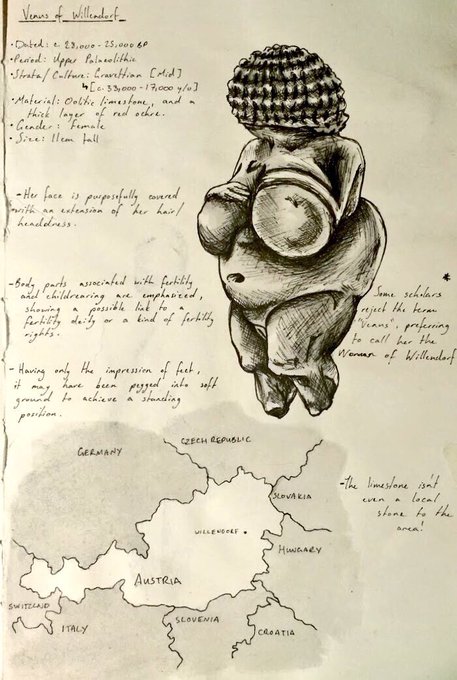 Venus of Willendorf
· Dated: c. 28,000 - 25,000 BP
· Period: Upper Palaeolithic
· Strata/Culture: Gravettian [Mid]
↳ [c. 33,000 - 17,000 y/o]
· Material: Oolitic limestone, and a
thick layer of red ochre.
· Gender: Female
· Size: 11cm tall
- Her face is purposefully covered
with an extension of her hair/
headdress.
- Body parts associated with fertility
and childrearing are emphasized,
showing a possible link to a
fertility deity or a kind of fertility
rights.
- Having only the impression of feet,
it may have been pegged into soft
ground to achieve a standing
position.
*
Some scholars
reject the term
"Venus", preferring
to call her the
Woman of Willendorf
- the limestone isn't
even a local
stone to the
area!
GERMANY
CZECH REPUBLIC
SLOVAKIA
WILLENDORF
HUNGARY
AUSTRIA
SWITZLND
ITALY
SLOVENIA
CROATIA